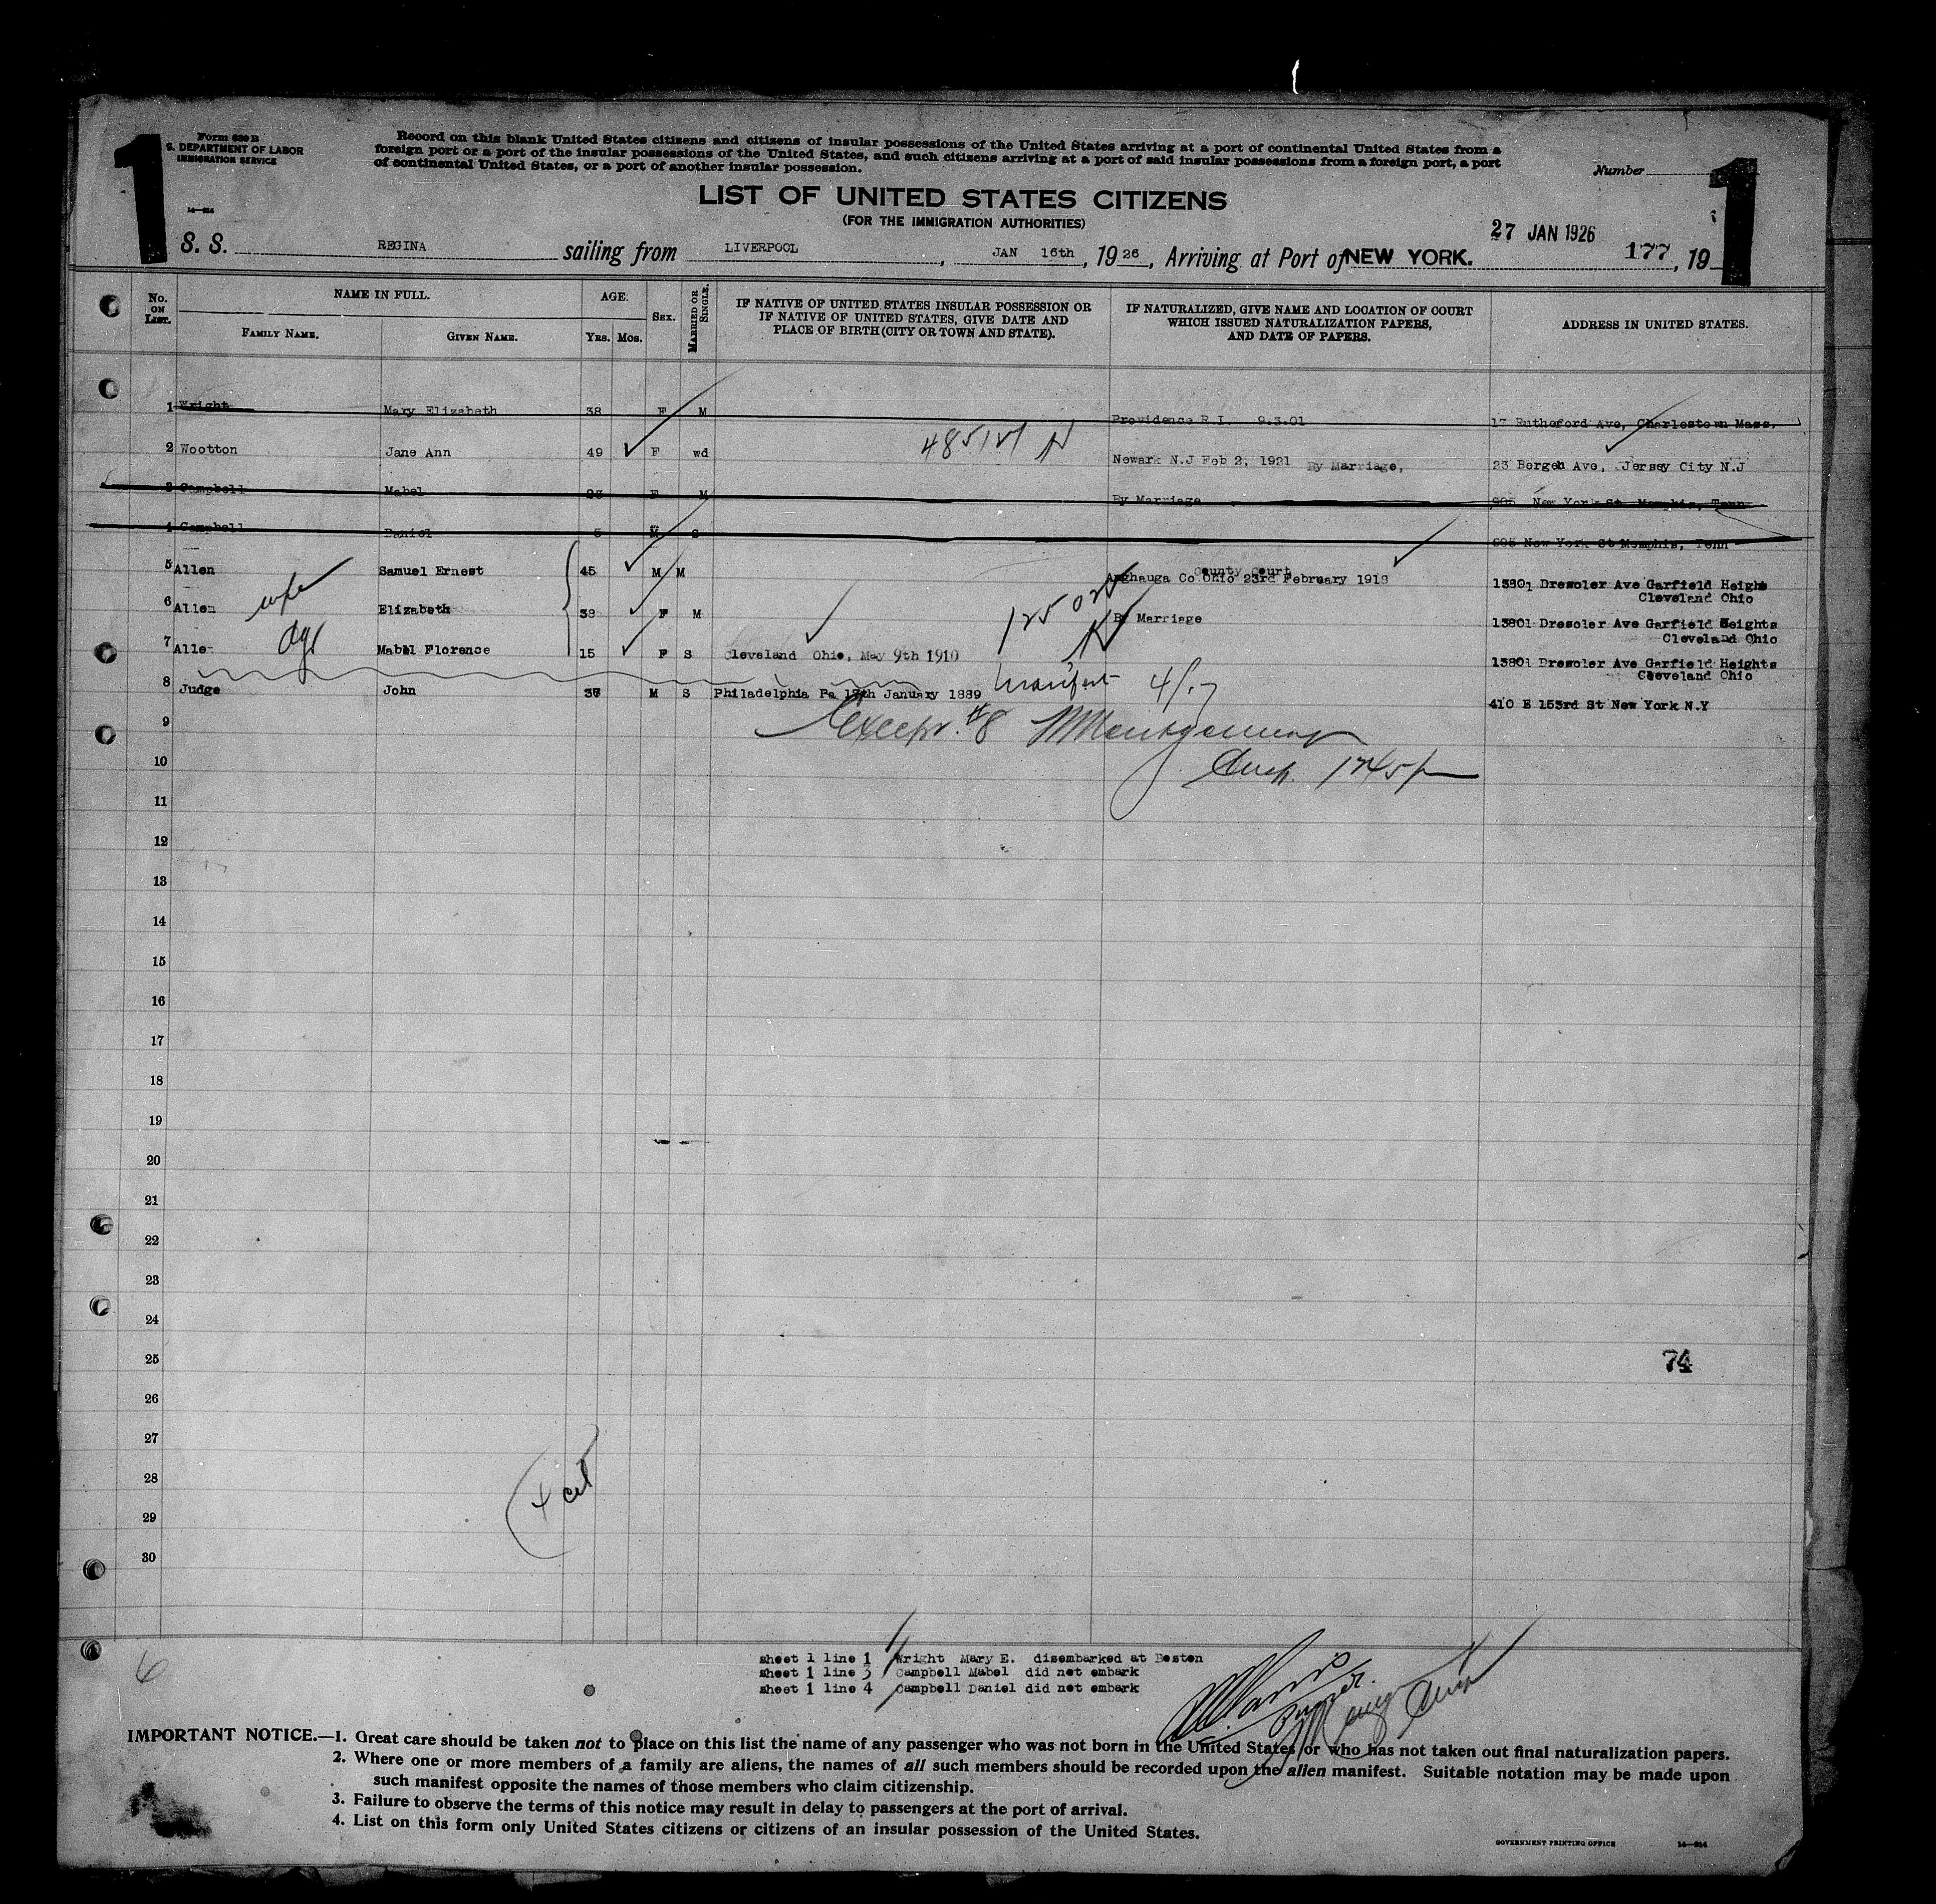 1
Form 630 B
S. DEPARTMENT OF LABOR
IMMIGRATION SERVICE
14—214
Record on this blank United States citizens and citizens of insular possessions of the United States arriving at a port of continental United States from a
foreign port or a port of the insular possessions of the United States, and such citizens arriving at a port of said insular possessions from a foreign port, a port
of continental United States, or a port of another insular possession.
Number
1
LIST OF UNITED STATES CITIZENS
(FOR THE IMMIGRATION AUTHORITIES)
27 JAN 1926
S. S. REGINA sailing from LIVERPOOL, JAN 16th, 1926, Arriving at Port of NEW YORK. 177, 19
No. ON LIST. NAME IN FULL. FAMILY NAME. GIVEN NAME. AGE. YRS. MOS. SEX. MARRIED OR SINGLE. IF NATIVE OF UNITED STATES INSULAR POSSESSION OR IF NATIVE OF UNITED STATES, GIVE DATE AND PLACE OF BIRTH (CITY OR TOWN AND STATE). IF NATURALIZED, GIVE NAME AND LOCATION OF COURT WHICH ISSUED NATURALIZATION PAPERS, AND DATE OF PAPERS. ADDRESS IN UNITED STATES.
1 Wright Mary Elizabeth 38 F M Providence R.I. 9.3.01 17 Rutheford Ave, Charlestown Mass.
2 Wootton Jane Ann 49 F wd Newark N.J Feb 2, 1921 By Marriage, 23 Bergen Ave, Jersey City N.J
3 Campbell Mabel F M By Marriage New York St Memphis, Tenn
4 Campbell Daniel 5 M S New York St Memphis, Tenn
5 Allen Samuel Ernest 45 M M County Court
Co Ohio 23rd February 1918 13801 Dresoler Ave Garfield Heighs
Cleveland Ohio
6 Allen wife Elizabeth F M By Marriage 13801 Dresoler Ave Garfield Heights
Cleveland Ohio
7 Alle dgt Mabel Florence 15 F S Cleveland Ohio, May 9th 1910 13801 Dresoler Ave Garfield Heights
Cleveland Ohio
8 Judge John M S Philadelphia Pa January 1889 Manifest 410 E 153rd St New York N.Y
9 Except #8 Montgomery
10 Insp.
11
12
13
14
15
16
17
18
19
20
21
22
23
24
25 74
26
27
28
29
30
6
sheet 1 line 1 Wright Mary E. disembarked at Boston
sheet 1 line 3 Campbell Mabel did not embark
sheet 1 line 4 Campbell Daniel did not embark
Purser.
IMPORTANT NOTICE.—1. Great care should be taken not to place on this list the name of any passenger who was not born in the United States or who has not taken out final naturalization papers.
2. Where one or more members of a family are aliens, the names of all such members should be recorded upon the alien manifest. Suitable notation may be made upon
such manifest opposite the names of those members who claim citizenship.
3. Failure to observe the terms of this notice may result in delay to passengers at the port of arrival.
4. List on this form only United States citizens or citizens of an insular possession of the United States.
GOVERNMENT PRINTING OFFICE 14—214